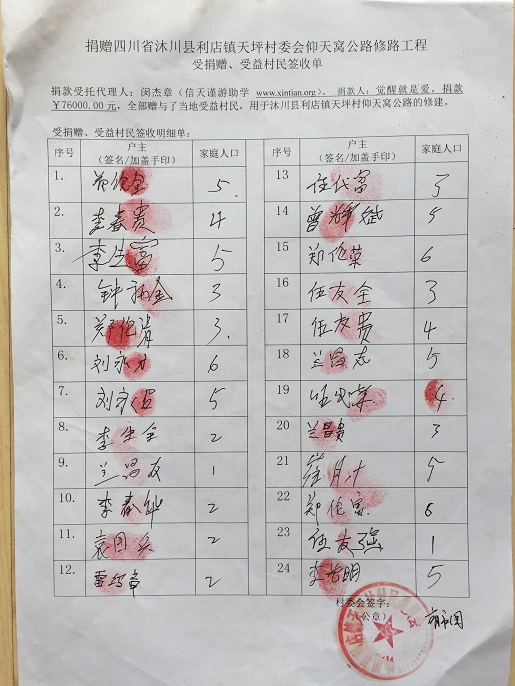 捐赠四川省沐川县利店镇天坪村委会仰天窝公路修路工程
受捐赠、受益村民签收单
捐款受托代理人：闵杰章（信天谨游助学 www.xintian.org）。 捐款人：觉醒就是爱，捐款
￥76000.00元，全部赠与了当地受益村民，用于沐川县利店镇天坪村仰天窝公路的修建。
受捐赠、受益村民签收明细单：
序号 户主 家庭人口 序号 户主 家庭人口
（签名/加盖手印） （签名/加盖手印）
1. 5. 13 任代富 3
2. 李春贵 4 14 曾辉斌 5
3. 李生富 5 15 郑伦荣 6
4. 钟 全 3 16 任友全 3
5. 郑伦 3. 17 任友贵 4
6. 刘永才 6 18 兰昌志 5
7. 刘永 5 19 4.
8. 李生全 2 20 兰昌贵 3
9. 兰昌友 1 21 5
10. 李春 2 22 郑伦 6
11. 袁 2 23 任友强 1
12. 雷 2 24 李 明 5
村委会签字：
（公章）